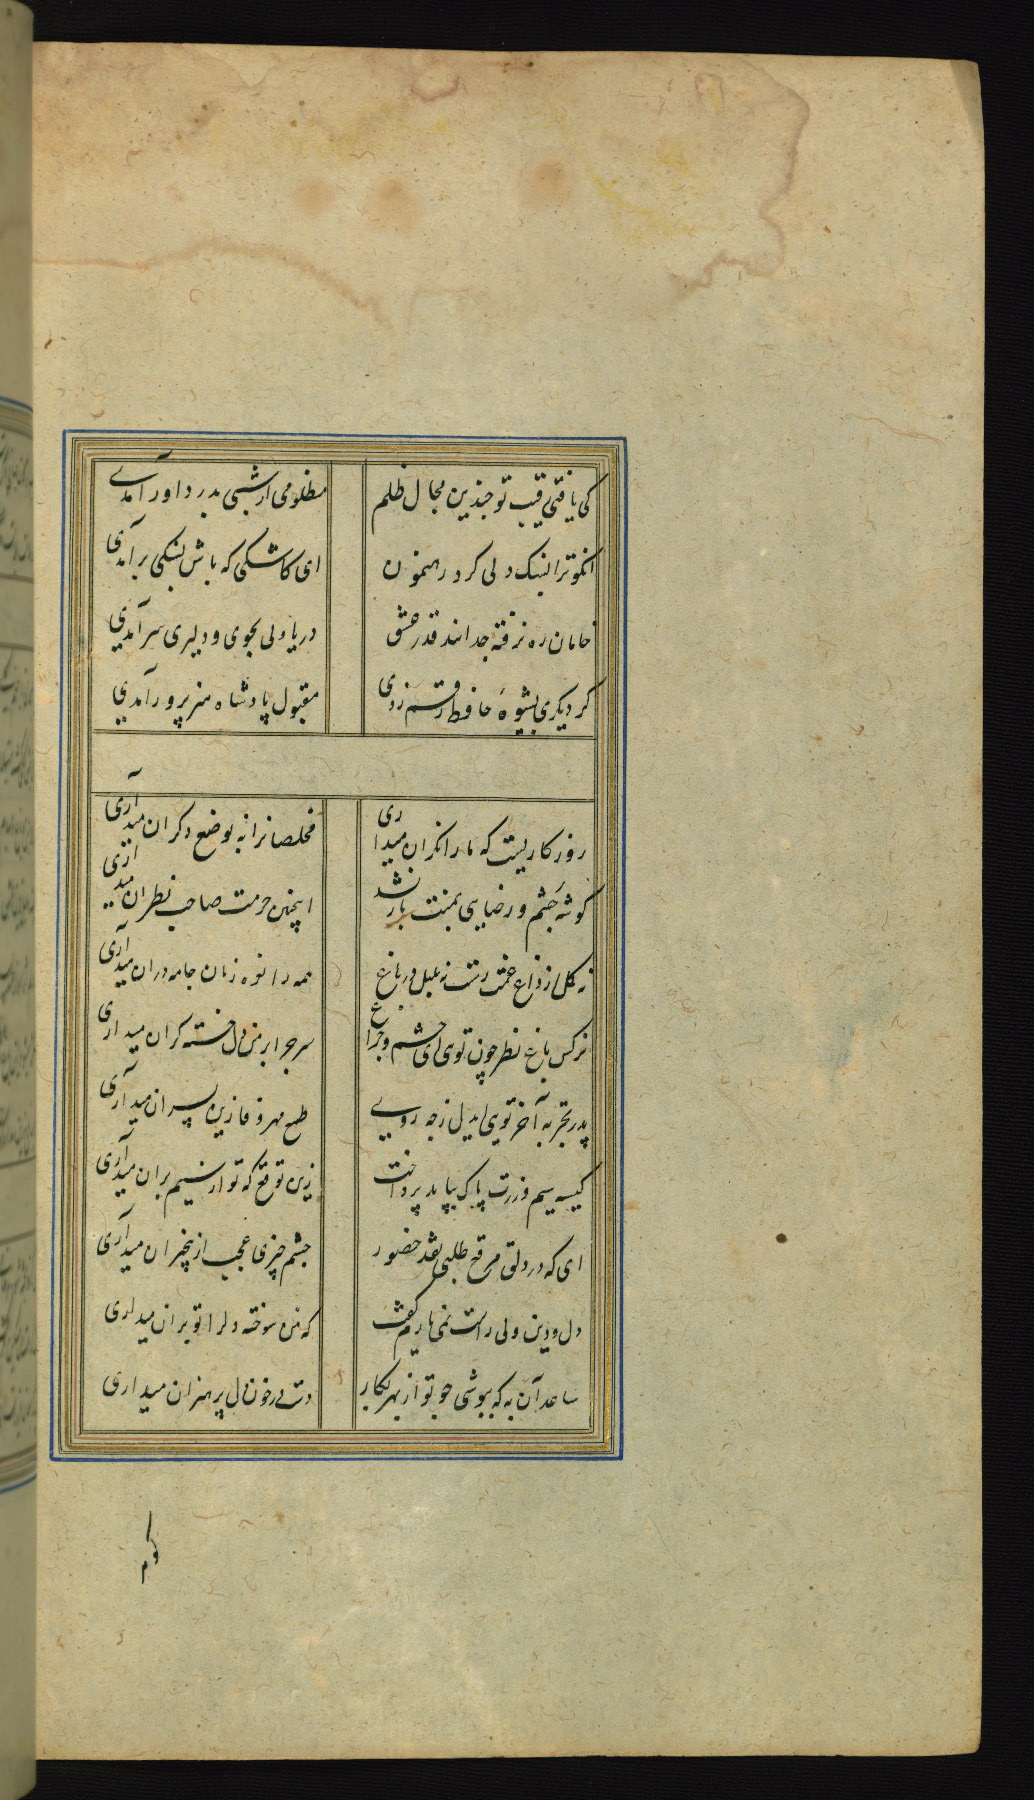 کی یافتی رقیب تو چندین مجال ظلم
مظلومی ار شبی بدر داور آمدی
انکو ترا بسنک دلی کرد رهنمون
ای کاشکی که پاش بسنکی برآمدی
خامان ره نرفته چدانند قدر عشق
دریا دلی بجوی و دلیری سرآمدی
کر دیکری بشیوهٔ حافظ رقم زدی
مقبول پادشاه هنرپرور آمدی
روزکاریست که ما را نکران میداری
مخلصانرا نه بوضع دکران میداری
کوشه چشم رضایی بمنت باز نشد
اینچنین حرمت صاحب نظران میداری
نه کل از داغ غمت رست نه بلبل در باغ
همه را نعره زنان جامه دران میداری
نرکس باغ نظر چون تویی ای چشم و چراغ
سر چرا بر من دل خسته کران میداری
پدر تجربه آخر تویی ایدل ز چه روی
طمع مهر و وفا زین پسران میداری
کیسه سیم و زرت پاک بباید پرداخت
زین توقع که تو از سیم بران میداری
ای که در دلق مرقع طلبی نقد حضور
چشم خیری عجب از بیخبران میداری
دل و دین ولی راست نمی یارم کفت
که من سوخته دل را تو بران میداری
ساعد آن به که بپوشی چو تو از بهر نکار
دست در خون دل پر هنران میداری